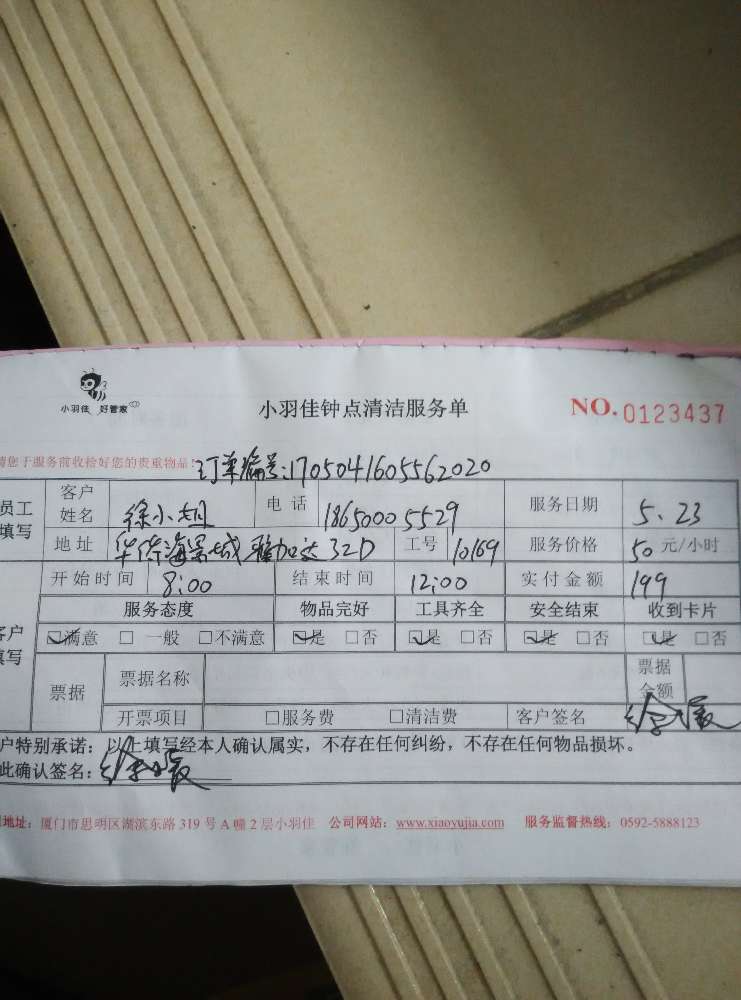 小羽佳 好管家
小羽佳钟点清洁服务单
NO.0123437
请您于服务前收捡好您的贵重物品! 订单编号:1705041605562020
员工填写 客户姓名 徐小姐 电话 18650005529 服务日期 5.23
地址 海景城 雅加达32D 工号 10169 服务价格 50元/小时
开始时间 8:00 结束时间 12:00 实付金额 199
服务态度 物品完好 工具齐全 安全结束 收到卡片
客户填写 ☑满意 □一般 □不满意 ☑是 □否 ☑是 □否 ☑是 □否 ☑是 □否
票据 票据名称 票据金额
开票项目 □服务费 □清洁费 客户签名
户特别承诺:以上填写经本人确认属实,不存在任何纠纷,不存在任何物品损坏。
此确认签名:
地址:厦门市思明区湖滨东路319号A幢2层小羽佳 公司网站:www.xiaoyujia.com 服务监督热线:0592-5888123